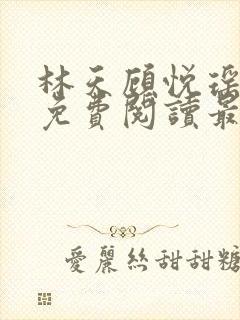 林天顾悦瑶
免費閱讀最
愛麗絲甜甜糖